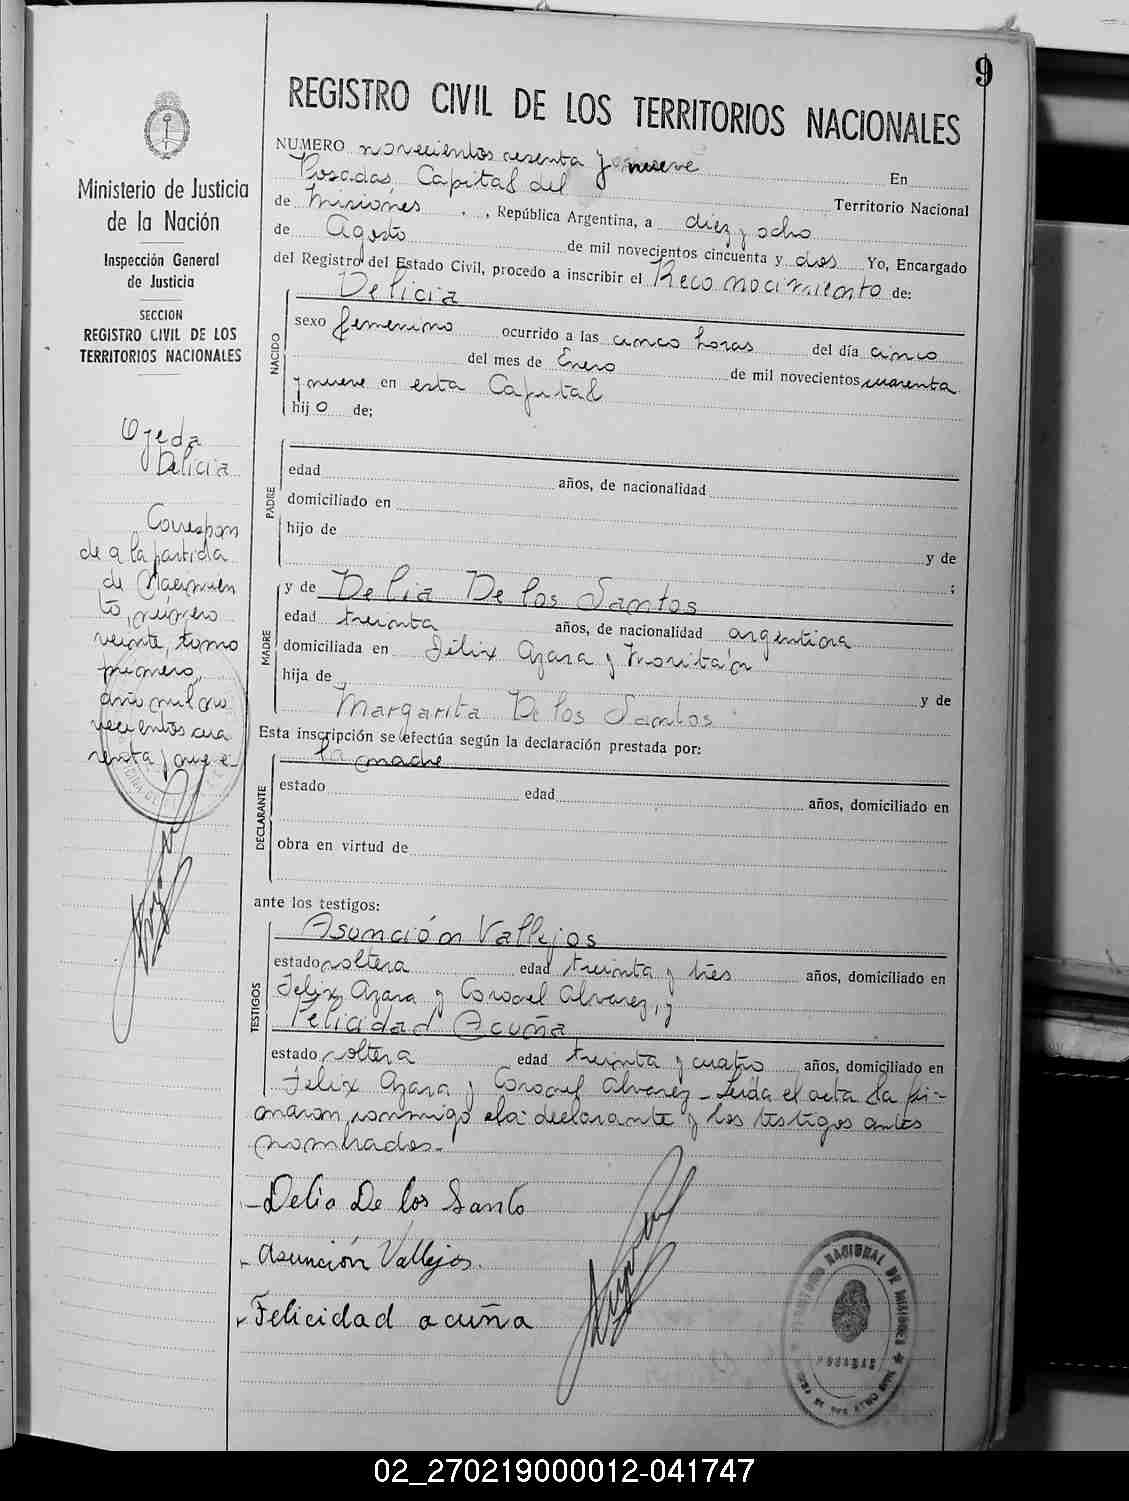 9
REGISTRO CIVIL DE LOS TERRITORIOS NACIONALES
Ministerio de Justicia
de la Nación
Inspección General
de Justicia
SECCION
REGISTRO CIVIL DE LOS
TERRITORIOS NACIONALES
Ojeda
Delicia
Correspon
de a la partida
de Nacimien
to, número
veinte, tomo
primero,
año mil no
vecientos cua
renta y nueve
NUMERO novecientos sesenta y nueve En
Posadas, Capital del Territorio Nacional
de Misiones, República Argentina, a diez y ocho
de Agosto de mil novecientos cincuenta y dos Yo, Encargado
del Registro del Estado Civil, procedo a inscribir el Reconocimiento de:
Delicia
NACIDO
sexo femenino ocurrido a las cinco horas del día cinco
del mes de Enero de mil novecientos cuarenta
y nueve en esta Capital
hijo de;
PADRE
edad años, de nacionalidad
domiciliado en
hijo de
y de
;
MADRE
y de Delia De los Santos
edad treinta años, de nacionalidad argentina
domiciliada en Félix Azara y
hija de y de
Margarita De los Santos
Esta inscripción se efectúa según la declaración prestada por:
la madre
DECLARANTE
estado edad años, domiciliado en
obra en virtud de
ante los testigos:
TESTIGOS
Asunción Vallejos
estado soltera edad treinta y tres años, domiciliado en
Felix Azara y Coronel Alvarez, y
Felicidad Acuña
estado soltera edad treinta y cuatro años, domiciliado en
Felix Azara y Coronel Alvarez - Leida el acta la fir-
maron conmigo la declarante y los testigos antes
nombrados.-
- Delia De los Santo
- Asunción Vallejos.
- Felicidad acuña
TERRITORIO NACIONAL DE MISIONES
POSADAS
02_270219000012-041747